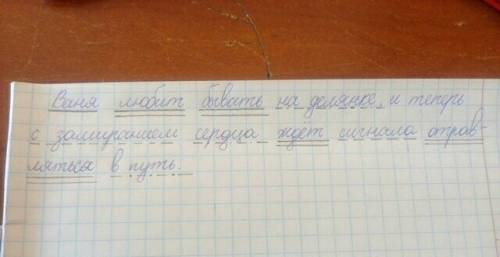 Ваня любит бывать на делянке, и теперь
с замиранием сердца ждет сигнала отрав-
ляться в путь.